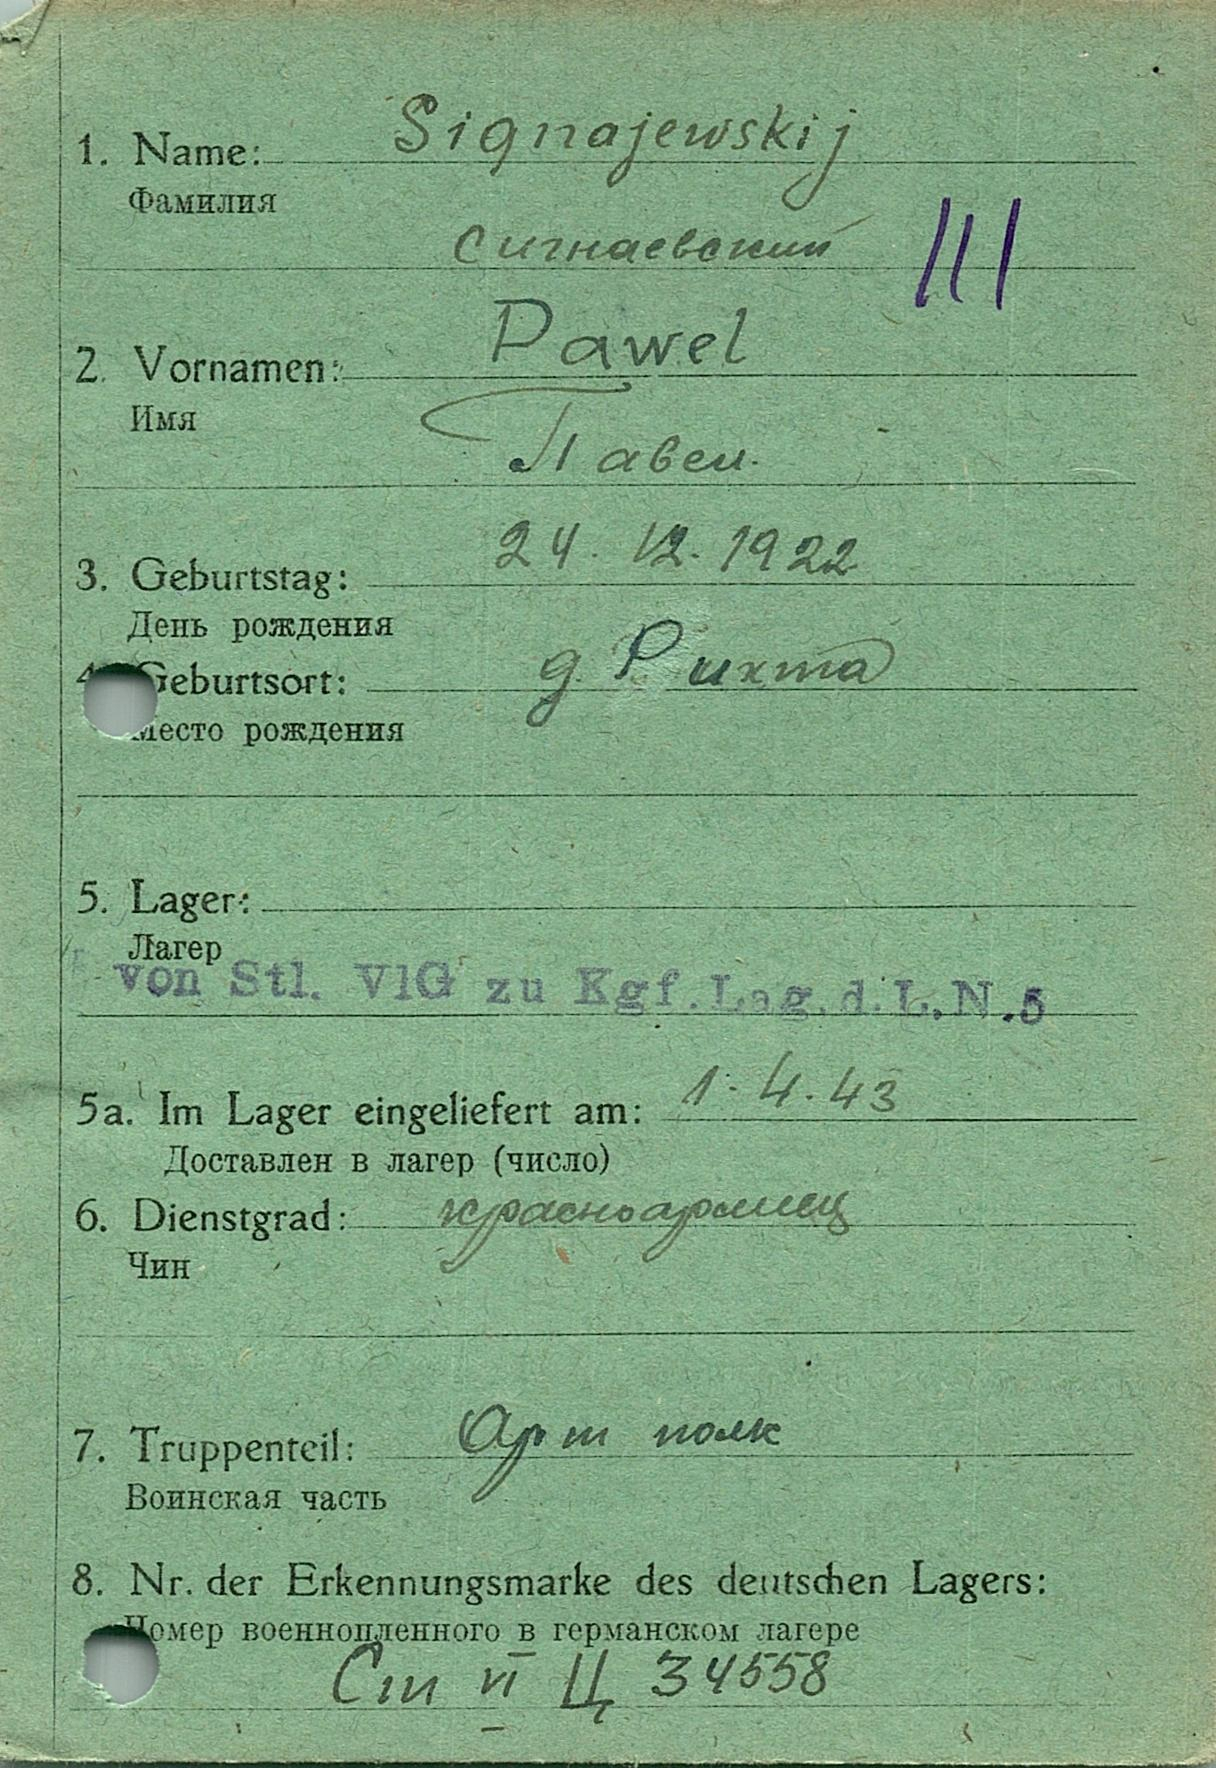 1. Name: Signajewskij
Фамилия
Сигнаевский
III
2. Vornamen: Pawel
Имя
Павел.
3. Geburtstag: 24. 12. 1922
День рождения
4. Geburtsort: д. Рихта
Место рождения
5. Lager:
Лагер
von Stl. VlG zu Kgf.Lag.d.L.N.5
5a. Im Lager eingeliefert am: 1. 4. 43
Доставлен в лагер (число)
6. Dienstgrad: красноармиец
Чин
7. Truppenteil: Арт полк
Воинская часть
8. Nr. der Erkennungsmarke des deutschen Lagers:
Номер военнопленного в германском лагере
Ст VI Ц 34558